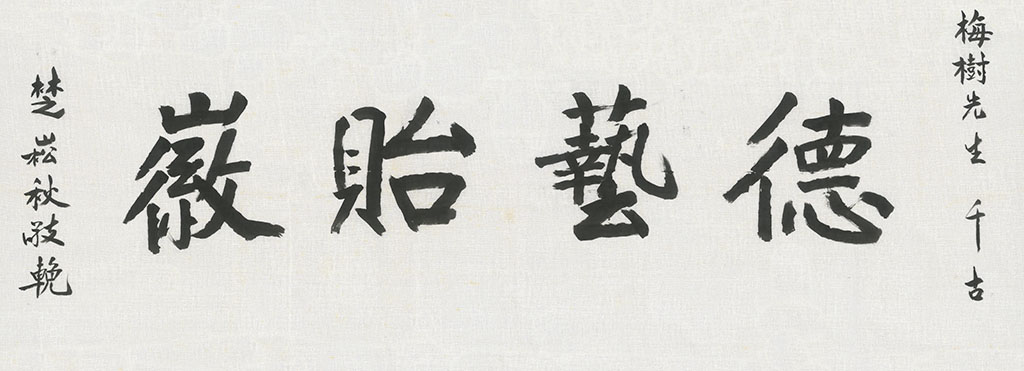 梅樹先生 千古
德藝貽徽
楚崧秋敬輓